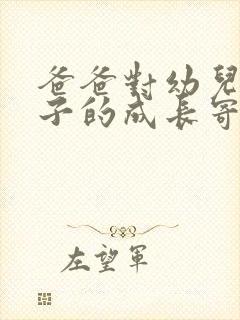 爸爸對幼兒
子的成長寄
左望軍